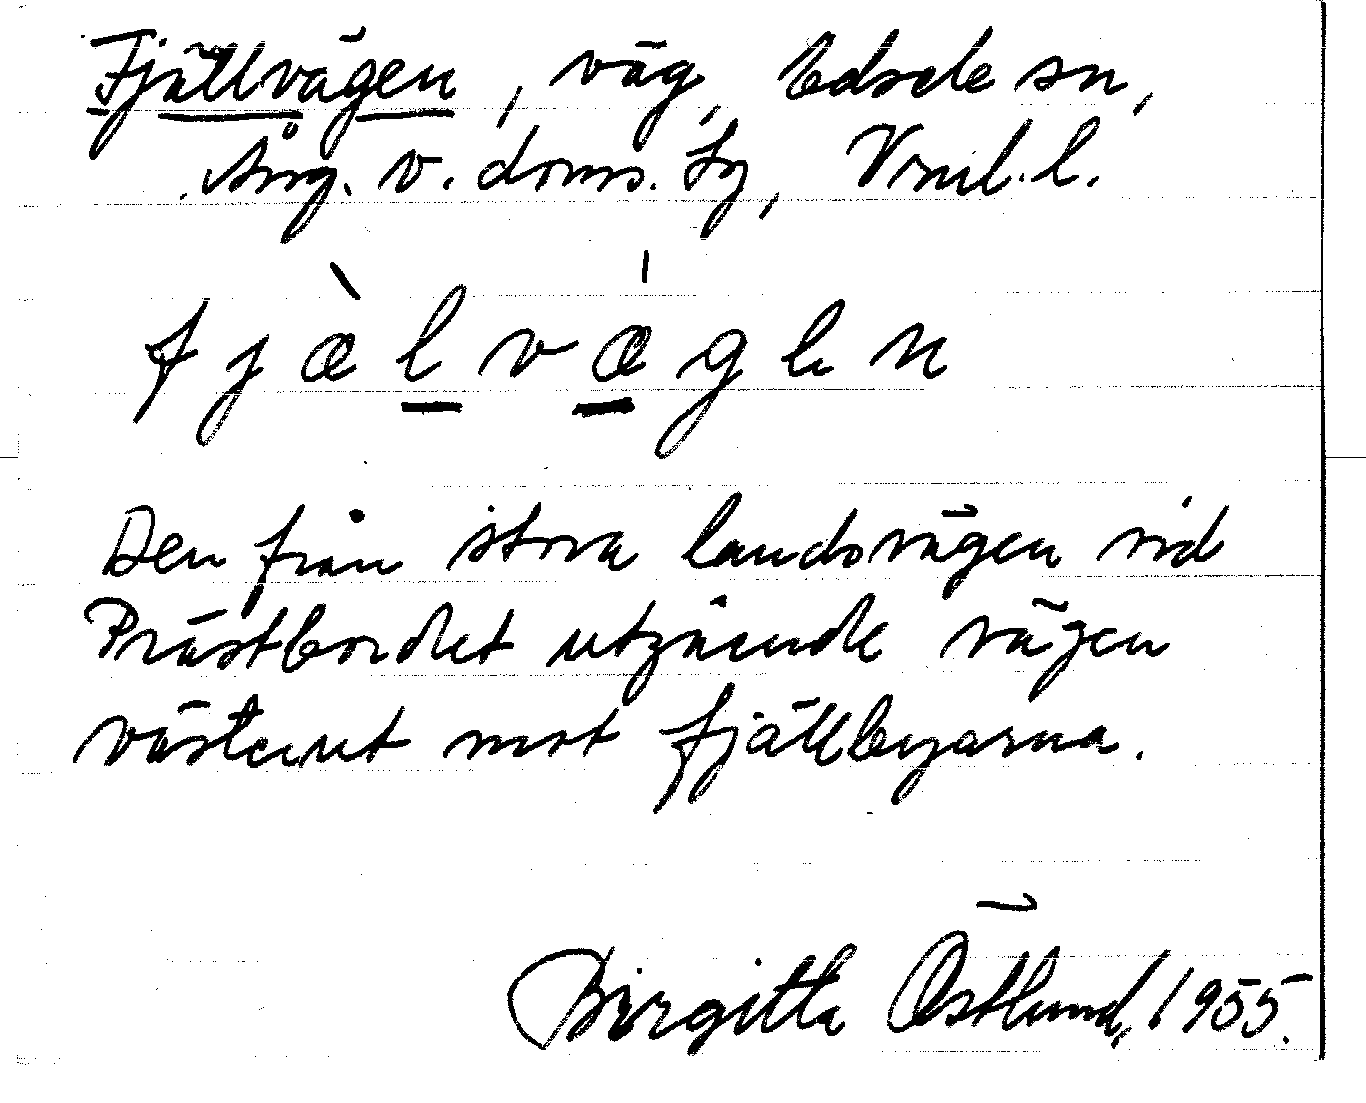 Fjällvägen, väg, Edsele sn,
Ång. v. doms. tg, Vrnl. l.
fjælvægen
Den från stora landsvägen vid
Prästbordet utgående vägen
västerut mot fjällbyarna.
Birgitta Östlund, 1955.